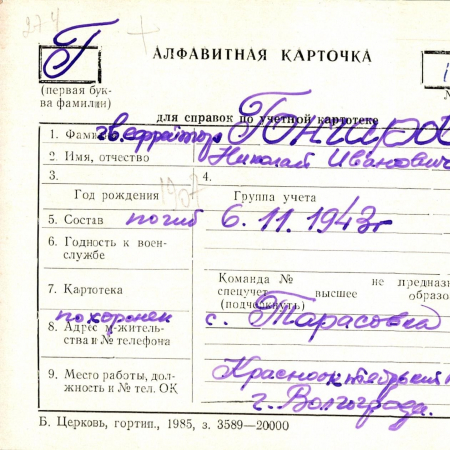 274
Г
АЛФАВИТНАЯ КАРТОЧКА
(первая бук-
ва фамилии)
для справок по учетной картотеке
1. Фам гв. ефрейтор Гончаров
2. Имя, отчество Николай Иванович
3. 1907 4.
Год рождения Группа учета
5. Состав погиб 6.11.1943г
6. Годность к воен-
службе
7. Картотека
Команда № не предназ
спецучет высшее образо
(подчеркнуть)
похоронен с. Тарасовка
8. Адрес м-житель-
ства и № телефона
9. Место работы, дол-
жность и № тел. ОК
Краснооктябрьский
г. Волгограда.
Б. Церковь, гортип., 1985, з. 3589—20000